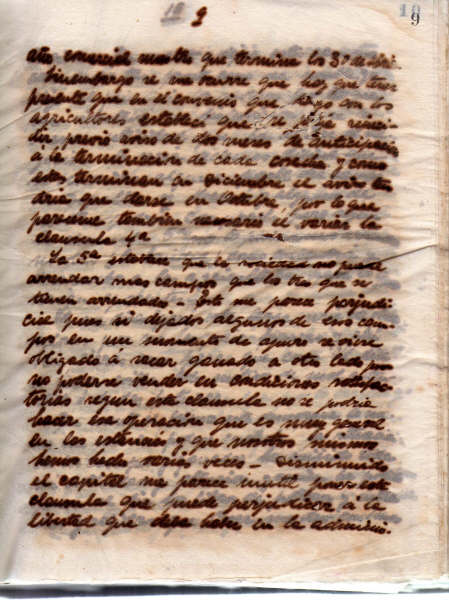 10 9
10
9
año comercial nuestro que termina los 30 de Abril.
Sinembargo se me ocurre que hay que tener
presente que en el convenio que hago con los
agricultores establecí que se puede rescin-
dir previo aviso de dos meses de anticipación
a la terminación de cada cosecha y como
estas terminan en Diciembre el aviso ten
dria que darse en Octubre, por lo que
pareceme tambien necesario el variar la
clausula 4a
La 5a establece que la sociedad no puede
arrendar mas campos que los tres que se
tienen arrendados - Esto me parece perjudi-
cial pues si dejados algunos de esos cam-
pos en un momento de apuro se viere
obligado á sacar ganado a otro lado por
no poderse vender en condiciones satisfac-
torias segun esta clausula no se podria
hacer esa operación que es muy general
en las estancias y que nosotros mismos
hemos hecho varias veces - Disminuido
el capital me parece inutil poner esta
clausula que puede perjudicar á la
libertad que debe haber en la adminis.